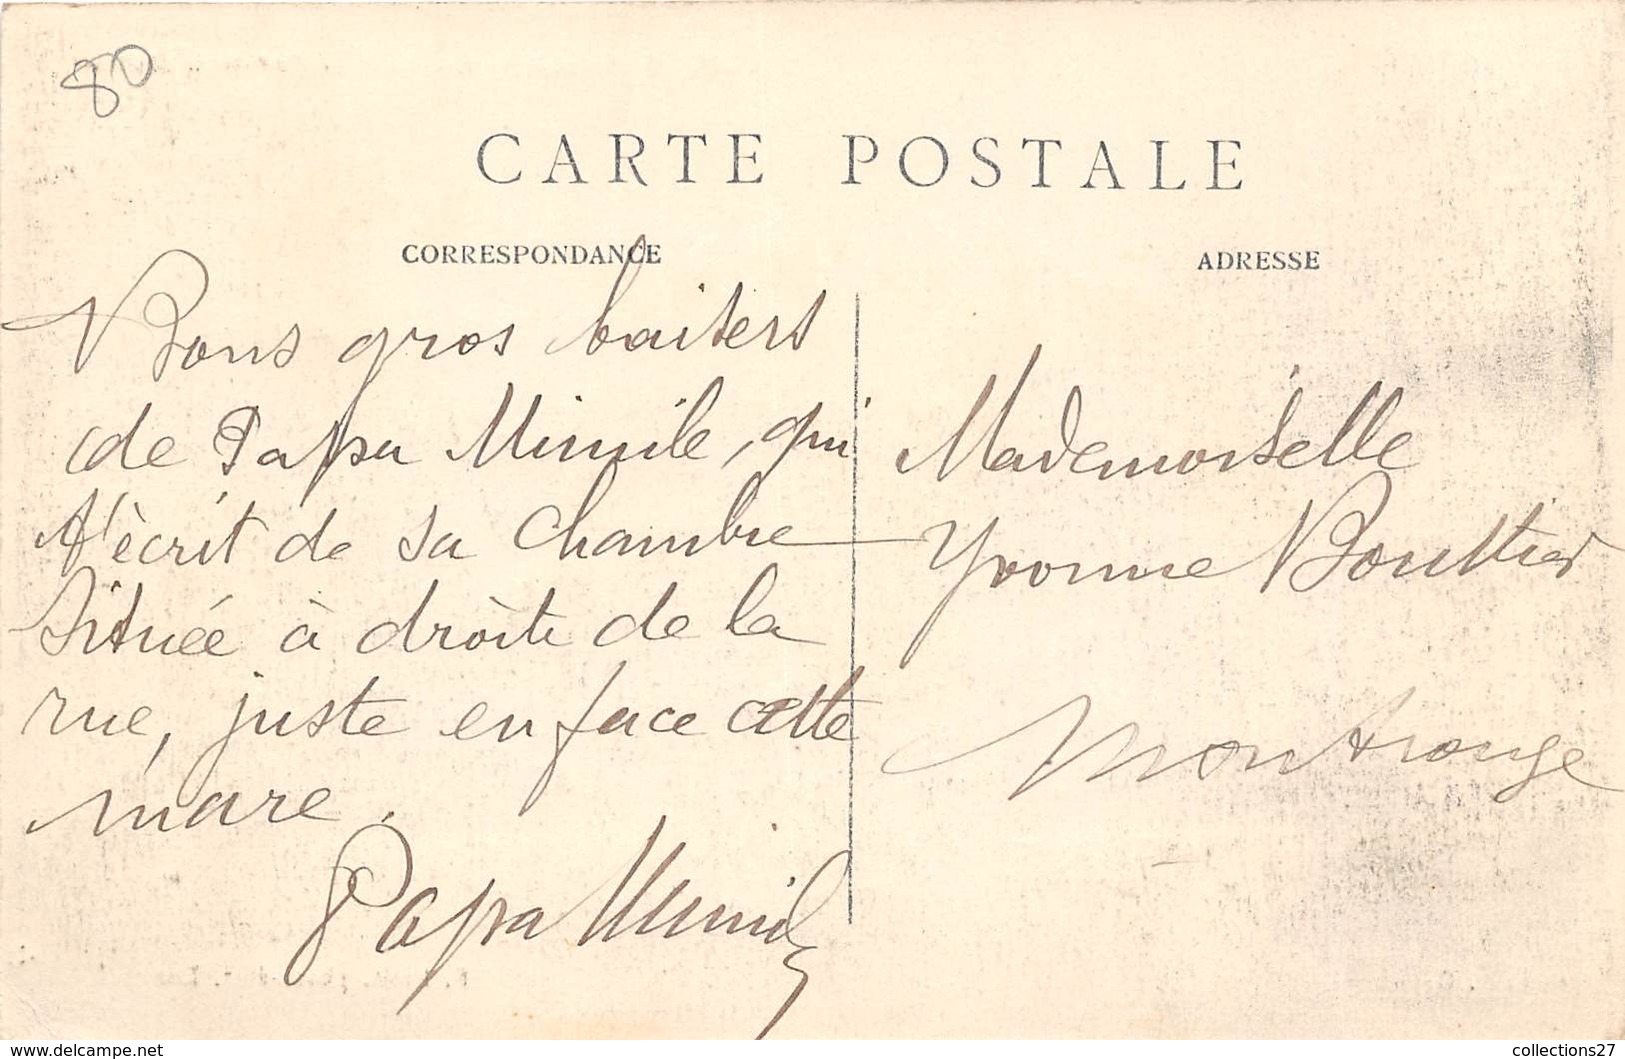 80
CARTE POSTALE
CORRESPONDANCE
ADRESSE
Bons gros baisers
de Papa Mimile, qui
t'écrit de sa chambre
située à droite de la
rue, juste en face cette
mare.
Papa Mimile
Mademoiselle
Yvonne Bouttier
Montrouge
www.delcampe.net
collections27